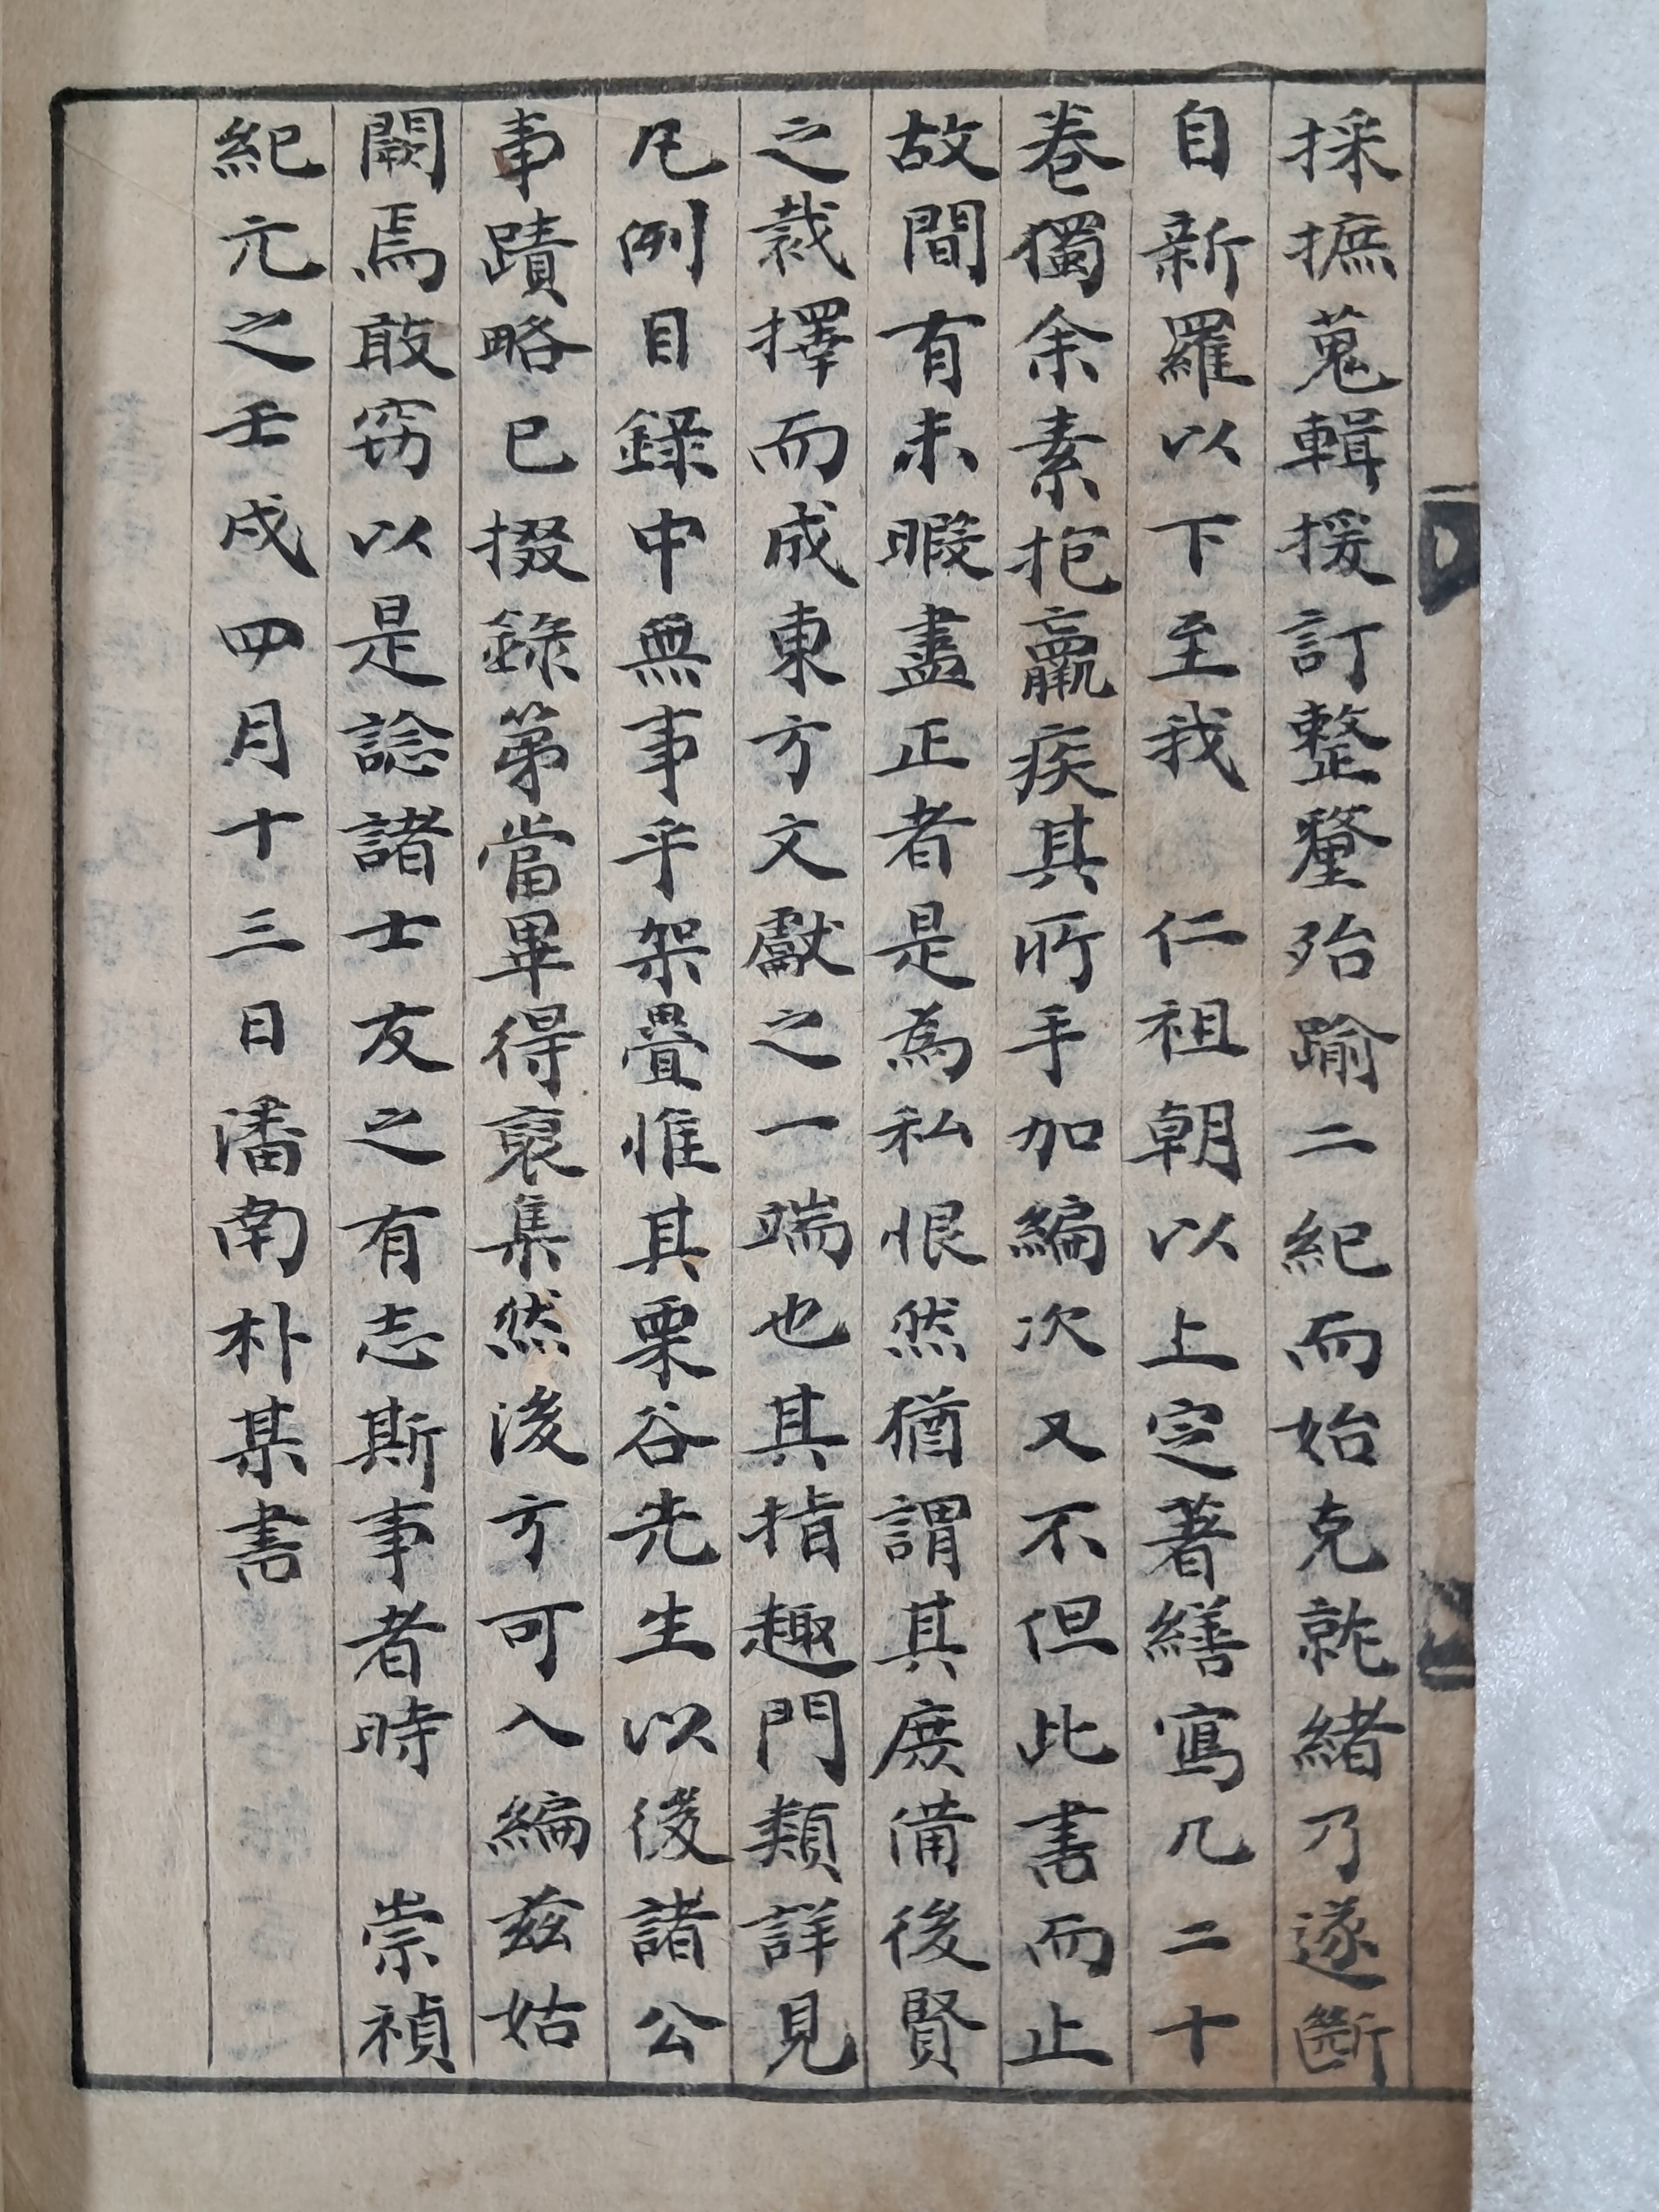 採摭蒐輯援訂整釐殆踰二紀而始克就緒乃遂斷
自新羅以下至我 仁祖朝以上定著繕寫凡二十
卷獨余素抱羸疾其所手加編次又不但此書而止
故間有未暇盡正者是為私恨然猶謂其庶備後賢
之裁擇而成東方文獻之一端也其指趣門類詳見
凡例目錄中無事乎架疊惟其栗谷先生以後諸公
事蹟略已掇錄第當畢得裒集然後方可入編玆姑
闕焉敢竊以是諗諸士友之有志斯事者時 崇禎
紀元之壬戌四月十三日潘南朴某書